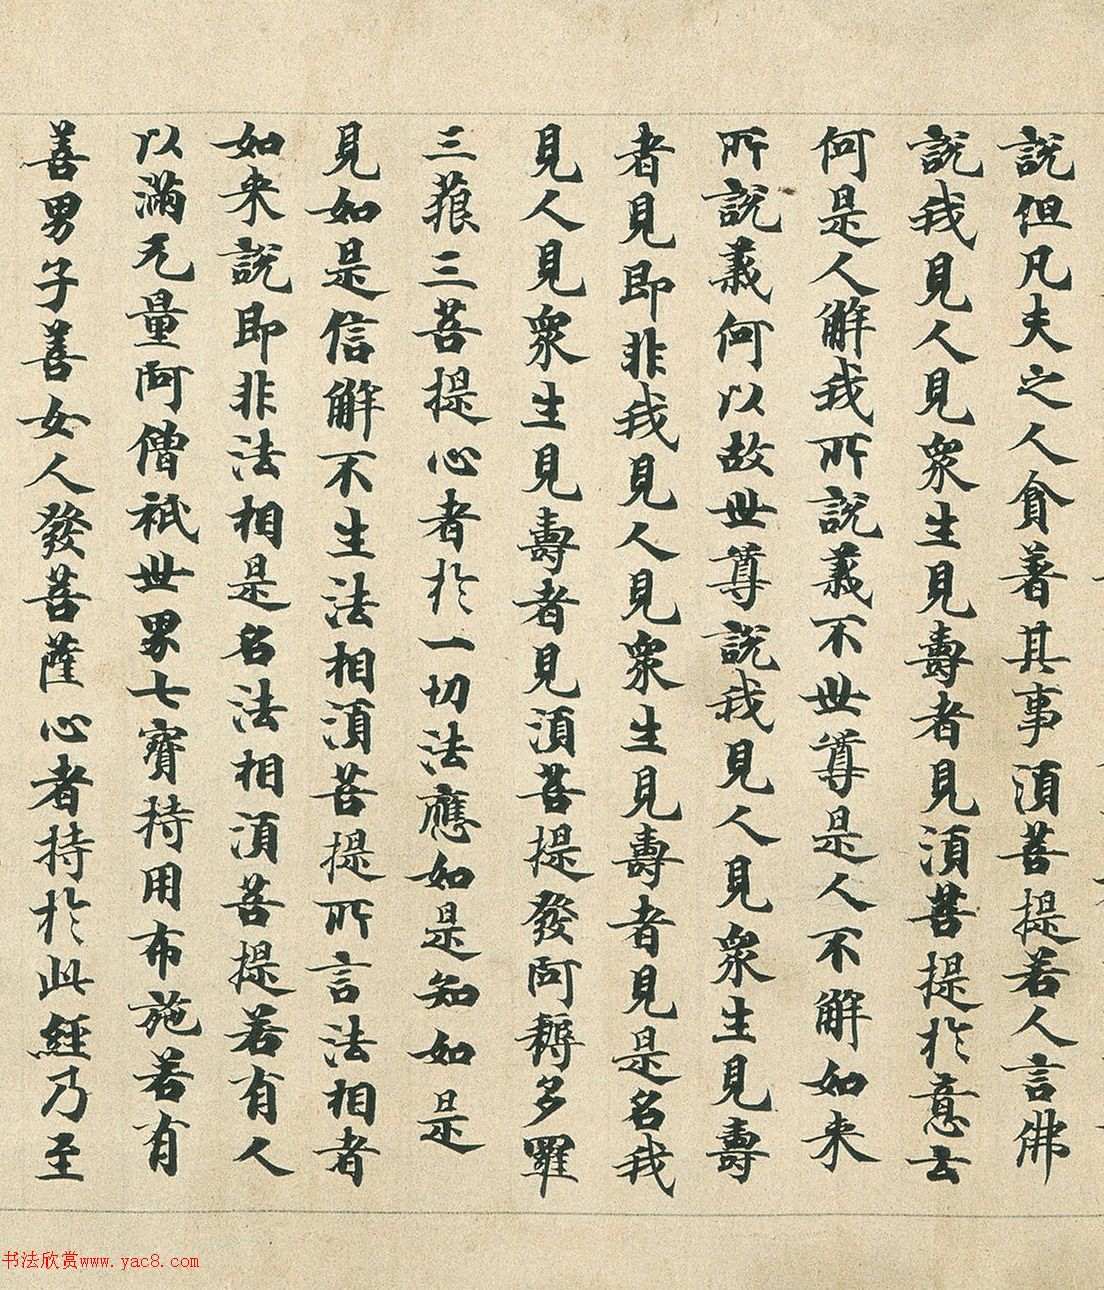 說但凡夫之人貪著其事須菩提若人言佛
說我見人見眾生見壽者見須菩提於意云
何是人解我所說義不世尊是人不解如来
所說義何以故世尊說我見人見眾生見壽
者見即非我見人見眾生見壽者見是名我
見人見眾生見壽者見須菩提發阿耨多羅
三藐三菩提心者於一切法應如是知如是
見如是信解不生法相須菩提所言法相者
如来說即非法相是名法相須菩提若有人
以滿无量阿僧祇世界七寶持用布施若有
善男子善女人發菩薩心者持於此經乃至
书法欣赏www.yac8.com